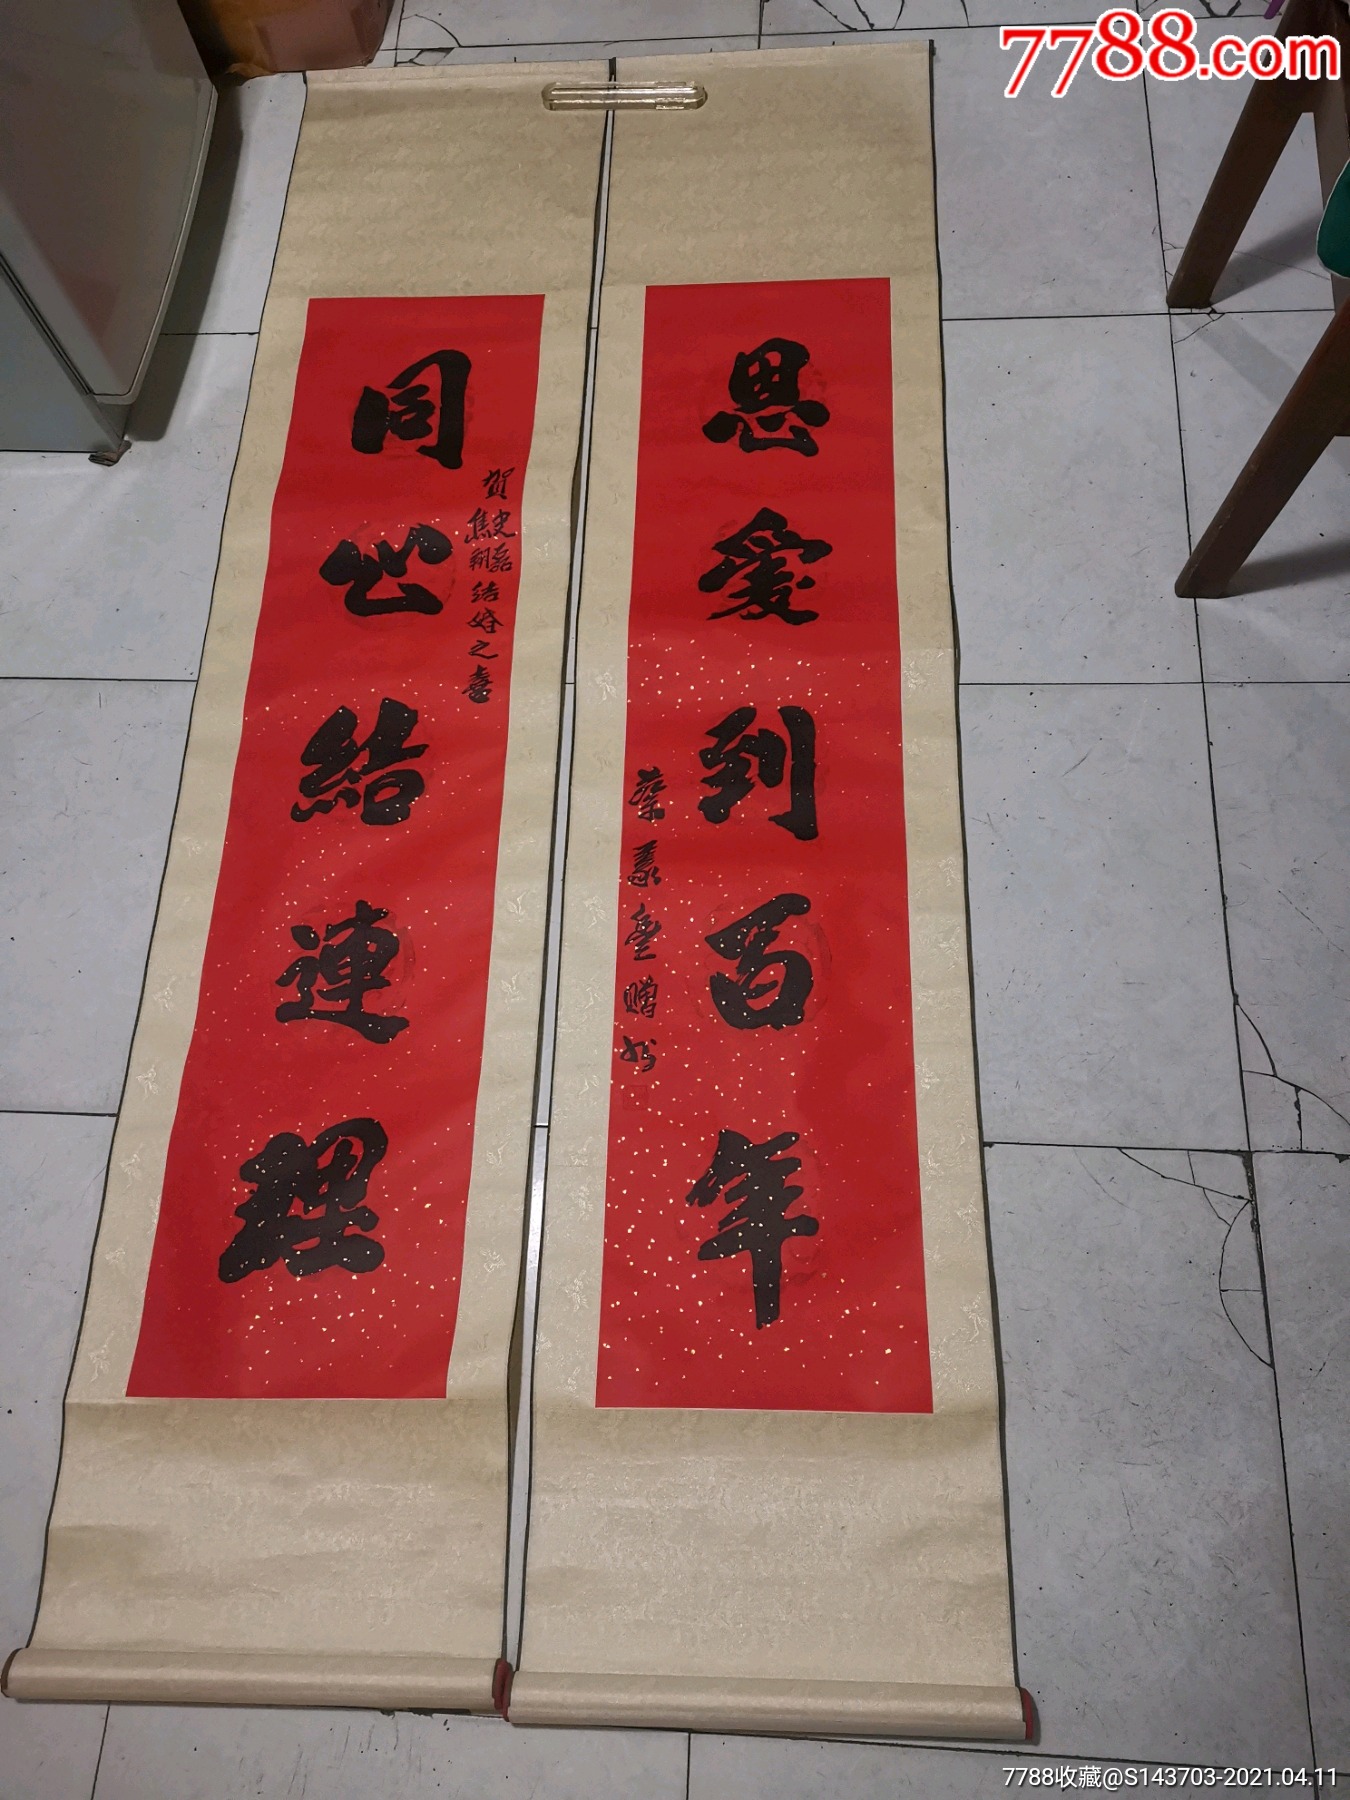 7788.com
恩愛到百年
同心結連理
賀史磊焦翔結婚之喜
蔡義
赠
7788收藏@S143703-2021.04.11